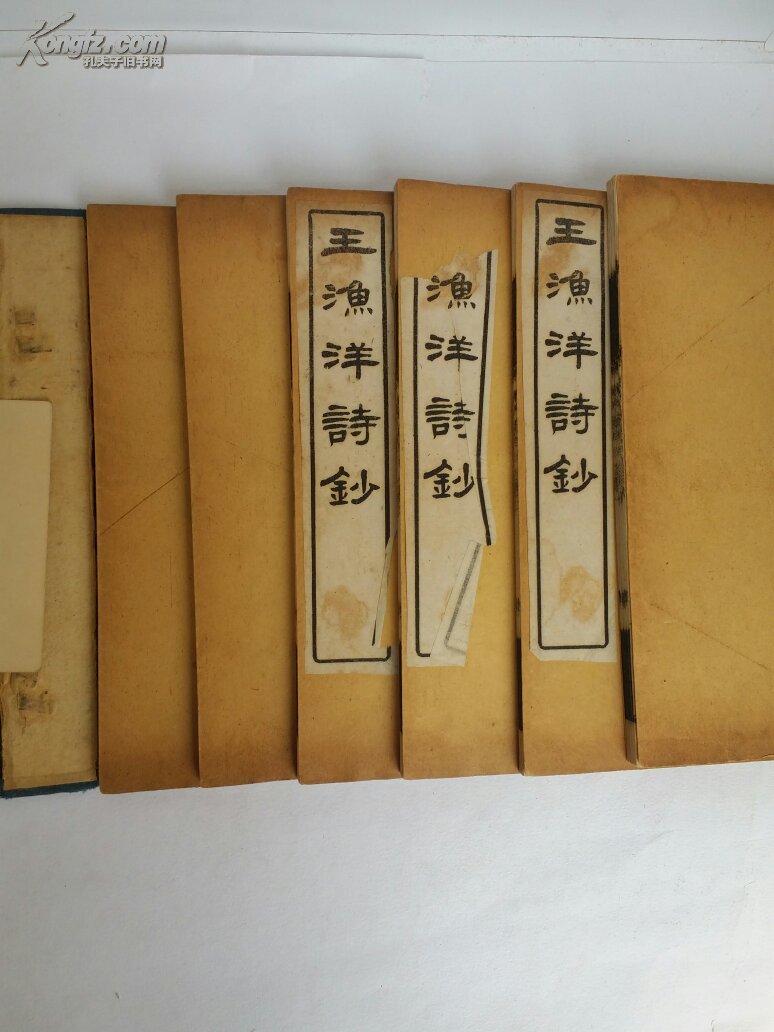 Kongfz.com
孔夫子旧书网
王漁洋詩鈔
漁洋詩鈔
王漁洋詩鈔